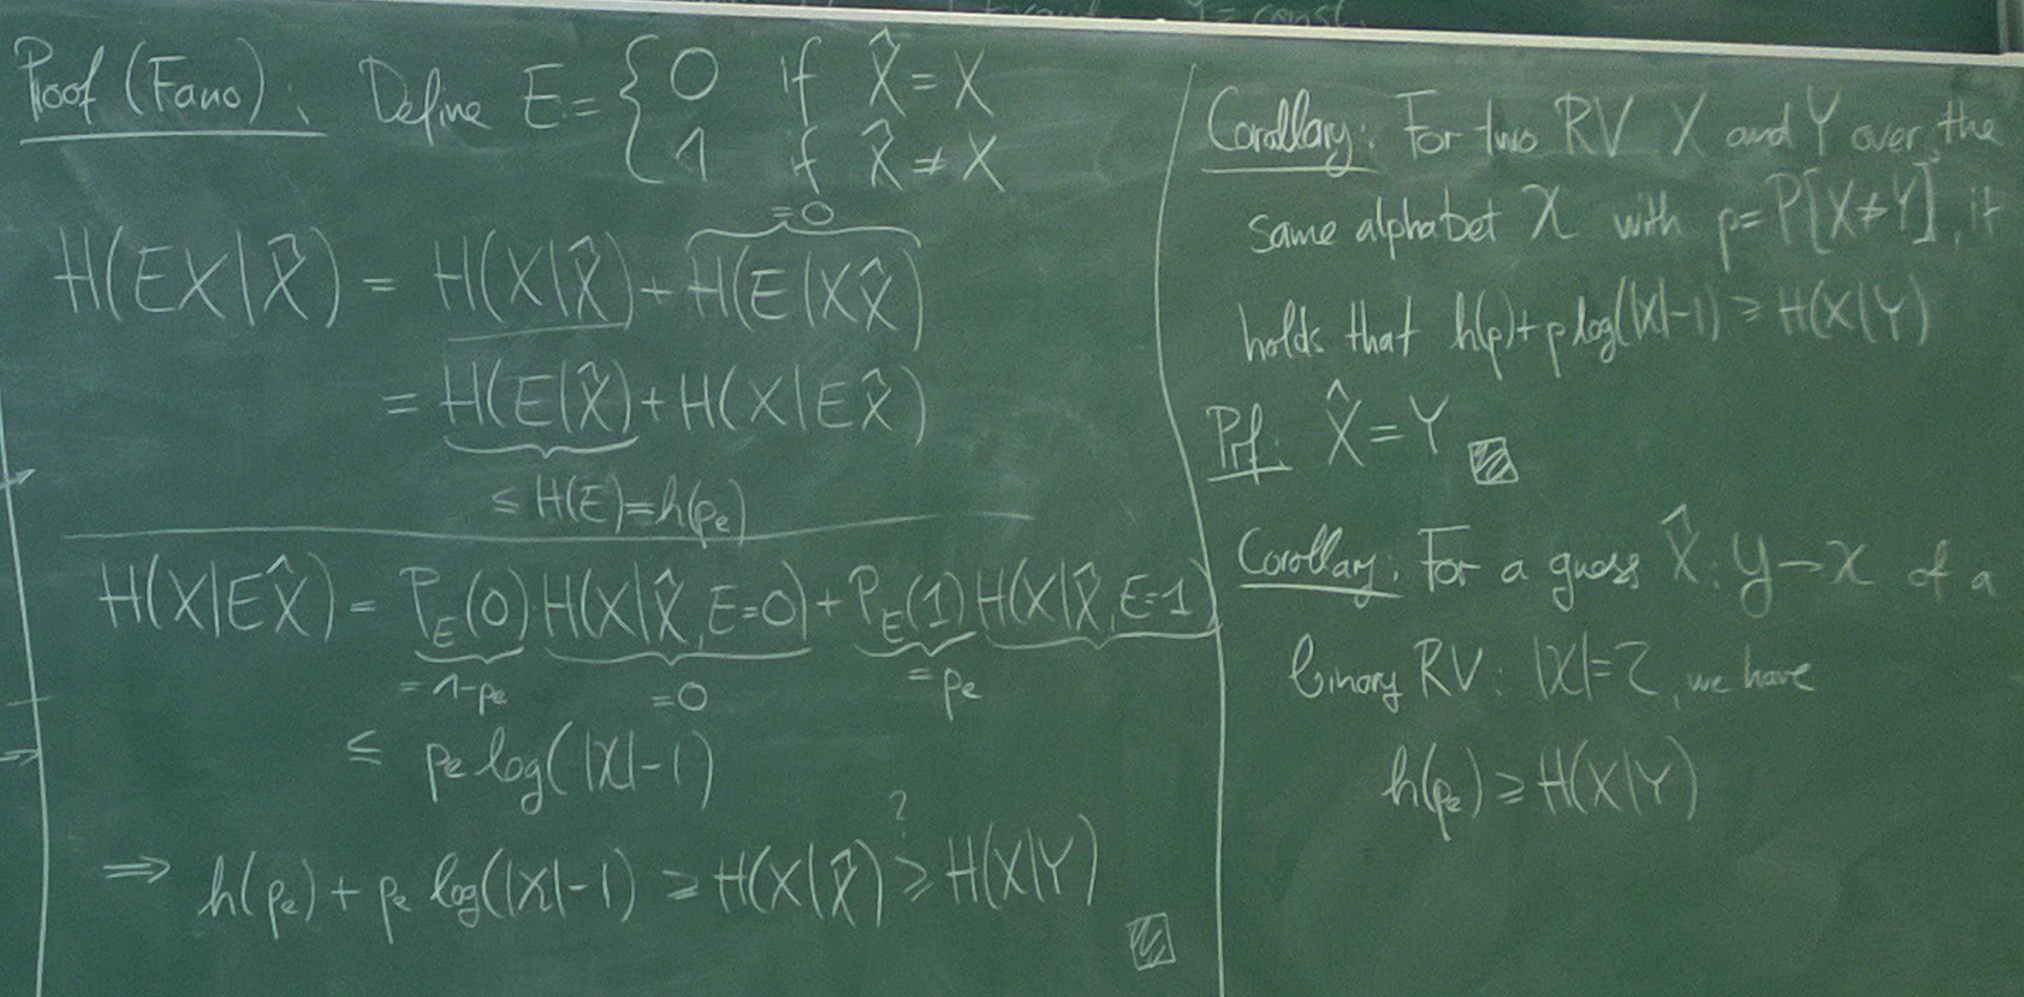 = const.
Proof (Fano): Define E := { 0 if X̂ = X
1 if X̂ ≠ X
H(EX|X̂) = H(X|X̂) + H(E|XX̂)
=0
= H(E|X̂) + H(X|EX̂)
≤ H(E) = h(pₑ)
H(X|EX̂) = P_E(0)·H(X|X̂, E=0) + P_E(1) H(X|X̂, E=1)
= 1-pₑ =0 = pₑ
≤ pₑ log(|𝒳|-1)
?
⇒ h(pₑ) + pₑ log(|𝒳|-1) ≥ H(X|X̂) ≥ H(X|Y)
Corollary: For two RV X and Y over the
same alphabet 𝒳 with p = P[X≠Y], it
holds that h(p) + p log(|𝒳|-1) ≥ H(X|Y)
Prf: X̂ = Y
Corollary: For a guess X̂: 𝒴 → 𝒳 of a
binary RV: |𝒳|=2, we have
h(pₑ) ≥ H(X|Y)